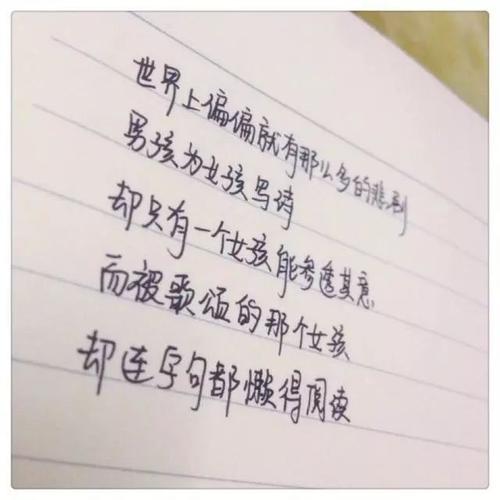 世界上偏偏就有那么多的悲剧
男孩为女孩写诗
却只有一个女孩能参透其意
而被歌颂的那个女孩
却连字句都懒得阅读